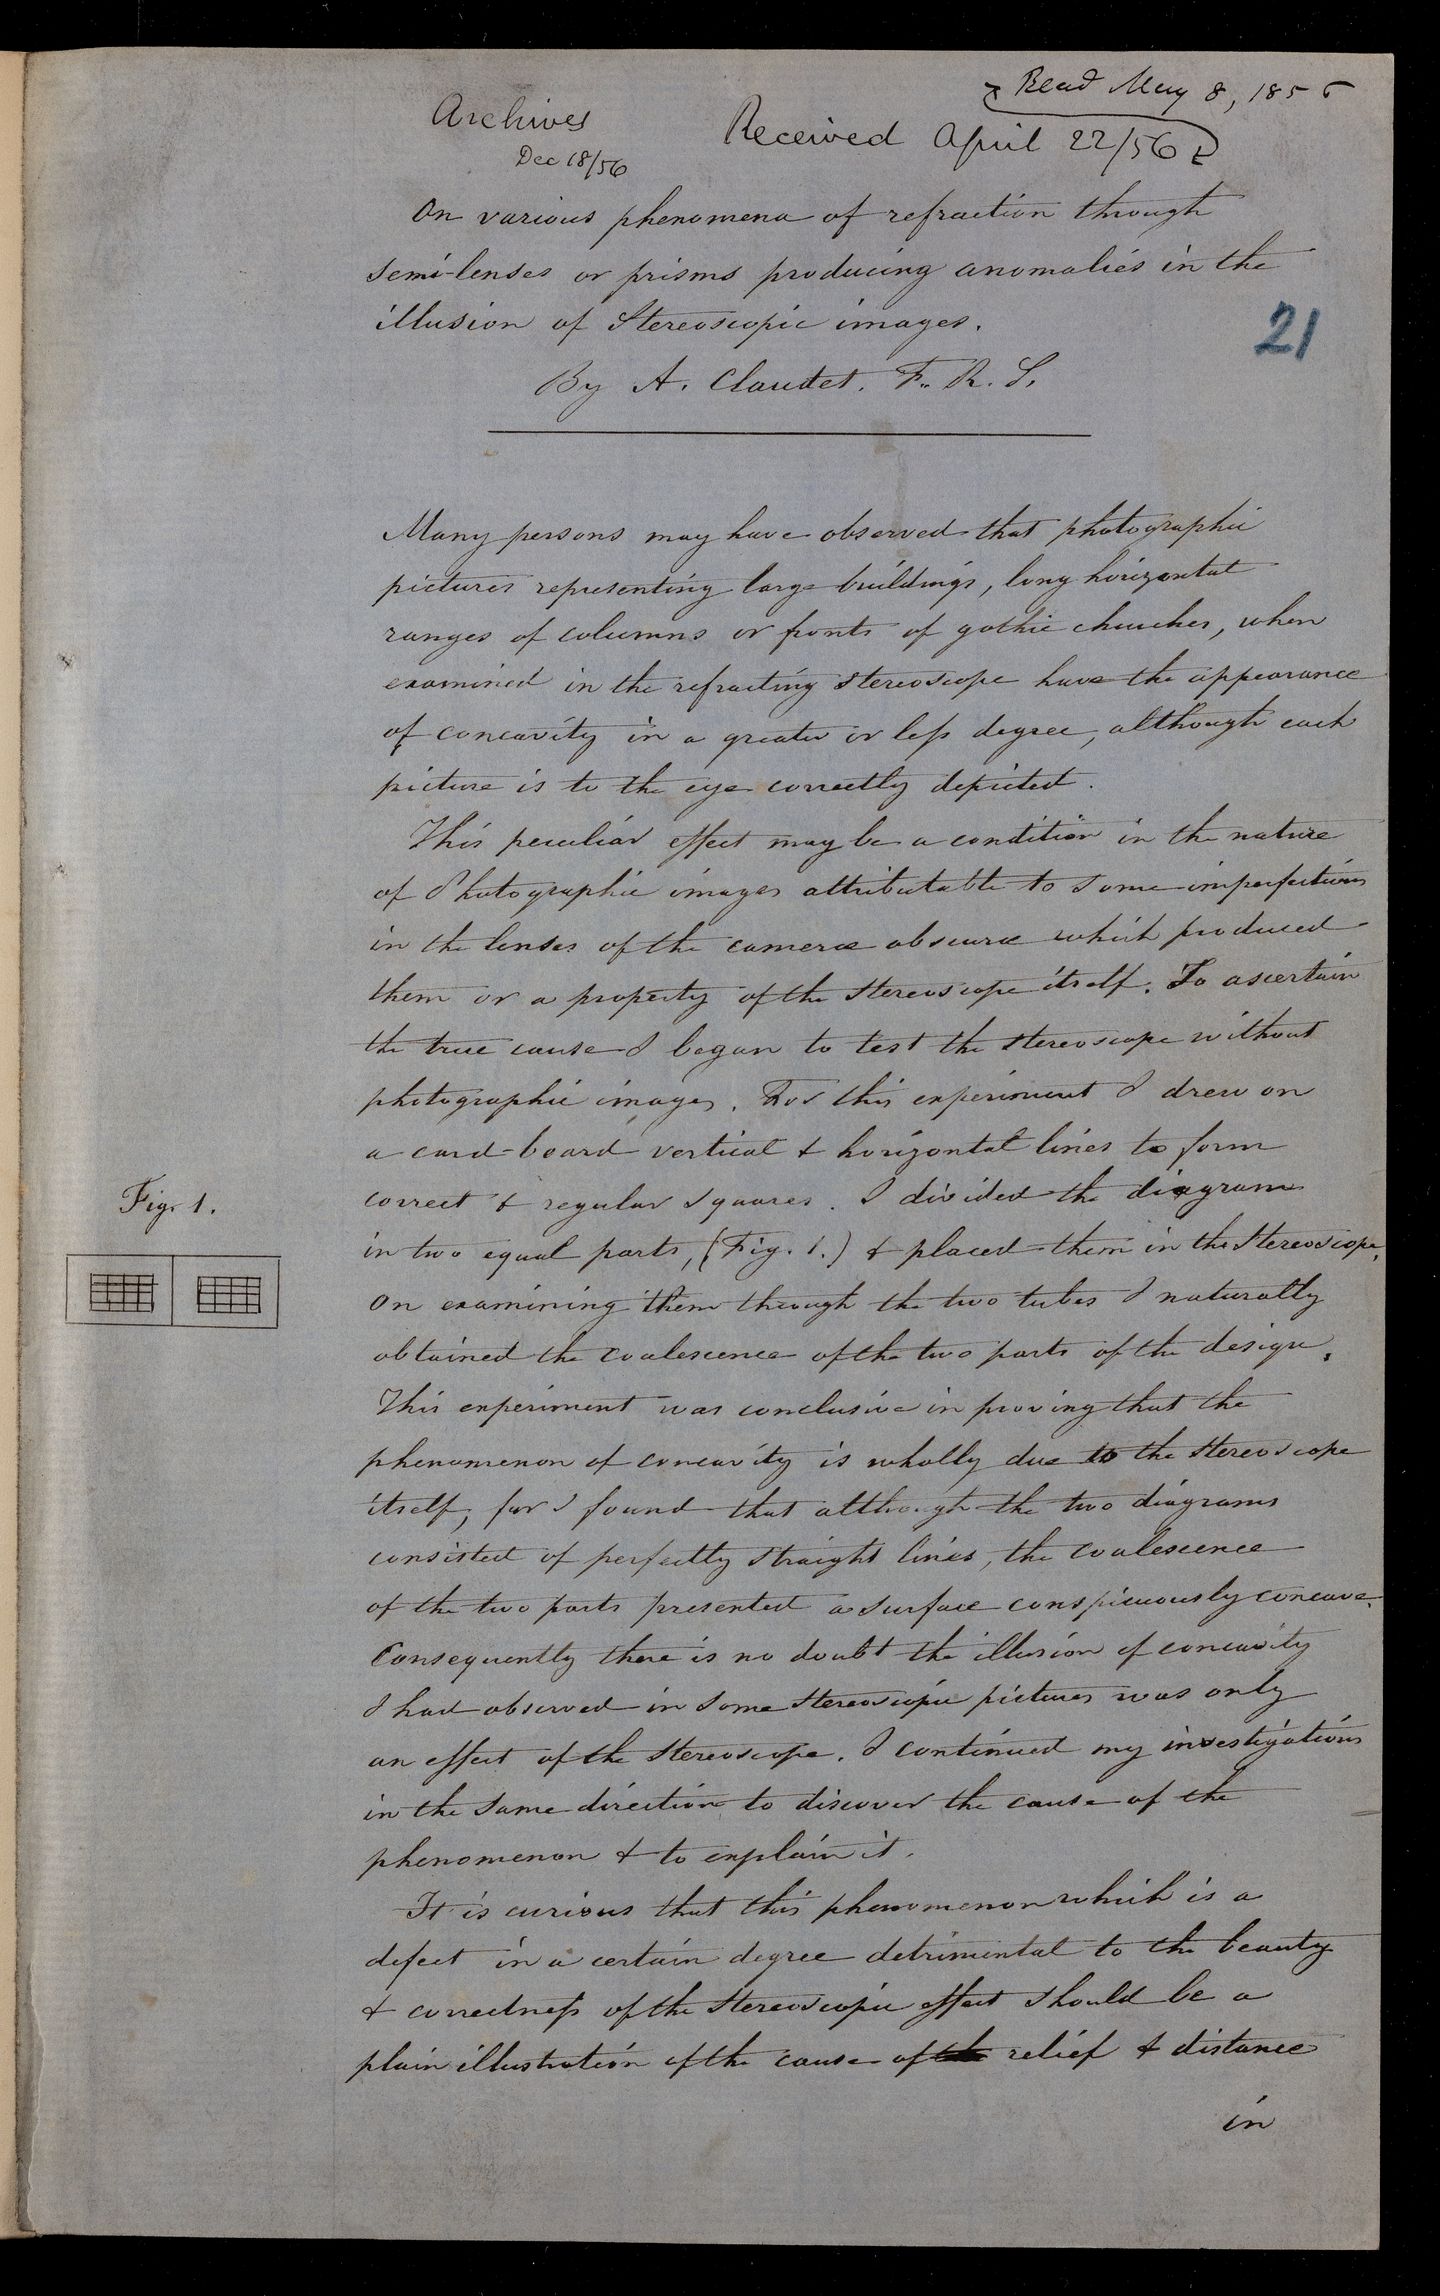 Read May 8, 1856
Archives
Received April 22/56
Dec 18/56
On various phenomena of refraction through
semi-lenses or prisms producing anomalies in the
illusion of Stereoscopic images.
21
By A. Claudet. F. R. S.
Many persons may have observed that photographic
pictures representing large buildings, long horizontal
ranges of columns or fronts of gothic churches, when
examined in the refracting stereoscope have the appearance
of concavity in a greater or less degree, although each
picture is to the eye correctly depicted.
This peculiar effect may be a condition in the nature
of Photographic images attributable to some imperfections
in the lenses of the cameræ obscuræ which produced
them or a property of the stereoscope itself. To ascertain
the true cause I began to test the stereoscope without
photographic images. For this experiment I drew on
a card-board vertical & horizontal lines to form
correct & regular squares. I divided the diagram
in two equal parts, (Fig. 1.) & placed them in the Stereoscope.
Fig. 1.
On examining them through the two tubes I naturally
obtained the coalescence of the two parts of the design.
This experiment was conclusive in proving that the
phenomenon of concavity is wholly due to the stereoscope
itself, for I found that although the two diagrams
consisted of perfectly straight lines, the coalescence
of the two parts presented a surface conspicuously concave.
Consequently there is no doubt the illusion of concavity
I had observed in some stereoscopic pictures was only
an effect of the stereoscope. I continued my investigations
in the same direction to discover the cause of the
phenomenon & to explain it.
It is curious that this phenomenon which is a
defect in a certain degree detrimental to the beauty
& correctness of the stereoscopic effect should be a
plain illustration of the cause of relief & distance
in